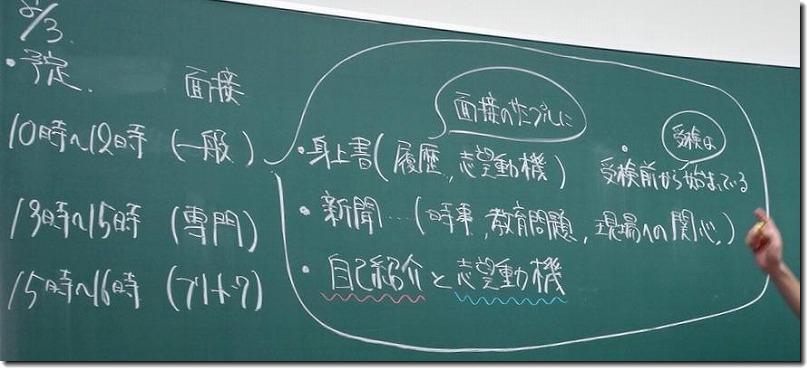 8/3.
・予定　面接
10時〜12時（一般）
13時〜15時（専門）
15時〜16時
面接のサンプルに
・身上書（履歴,志望動機）
受検は
・受検前から始まっている
・新聞…（時事,教育問題,現場への関心.）
・自己紹介と志望動機